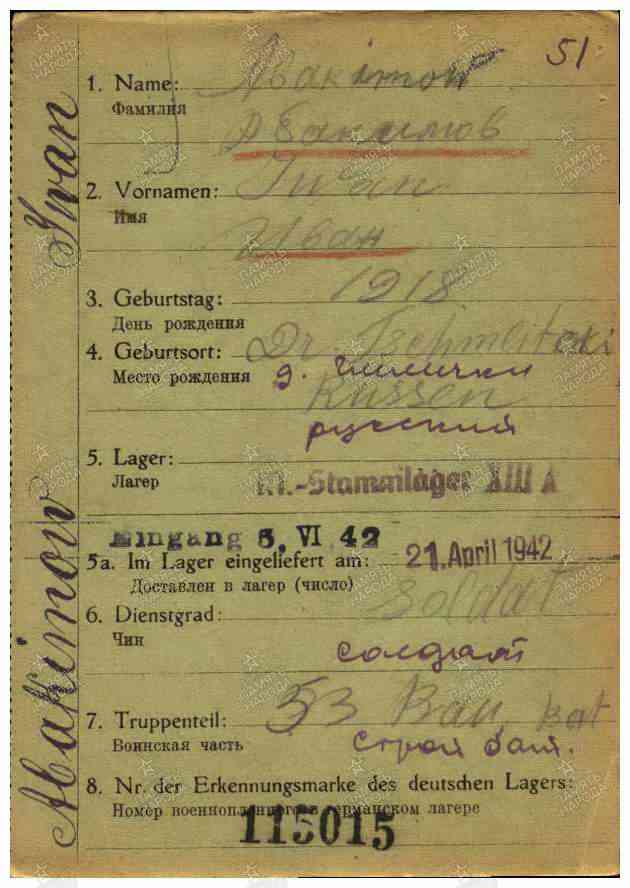 51
1. Name: Abakimow
Фамилия
Абакимов
2. Vornamen: Iwan
Имя
Иван
3. Geburtstag: 1918
День рождения
4. Geburtsort: Dr.
Место рождения д.
Russen
русский
5. Lager:
Лагер
Kr.-Stammlager XIII A
Eingang 5. VI 42
5a. Im Lager eingeliefert am: 21. April 1942
Доставлен в лагер (число)
6. Dienstgrad: Soldat
Чин
солдат
7. Truppenteil: 53 Bau. bat
Воинская часть строй бат.
8. Nr. der Erkennungsmarke des deutschen Lagers:
Номер военнопленного в германском лагере
115015
Abakimow Iwan
ПАМЯТЬ НАРОДА